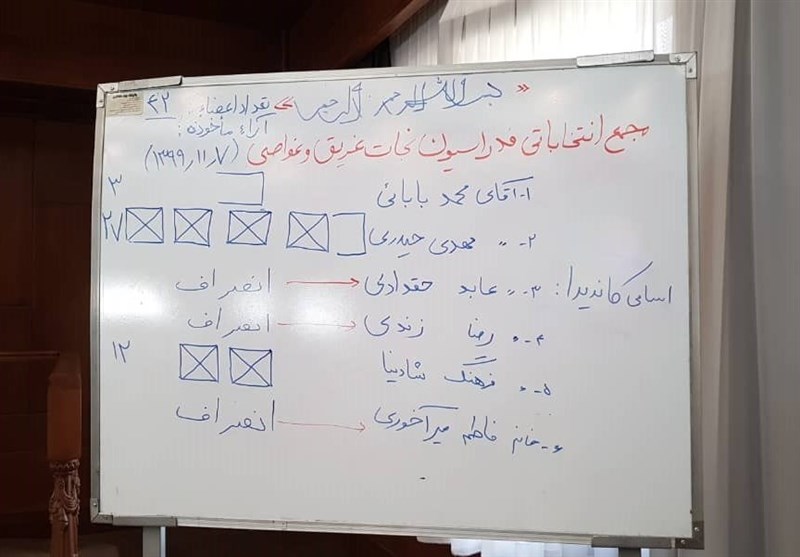 « بسم الله الرحمن الرحیم » تعداد اعضاء: ۴۲
آراء مأخوذه:
مجمع انتخاباتی فدراسیون نجات غریق و غواصی (۱۳۹۹٫۱۱٫۷)
۱- آقای محمد بابائی ۳
۲- " مهدی حیدری ۲۷
اسامی کاندیدا: ۳- " عابد حقدادی انصراف
۴- " رضا زندی انصراف
۵- " فرهنگ شادینا ۱۲
۶- خانم فاطم میرآخوری انصراف